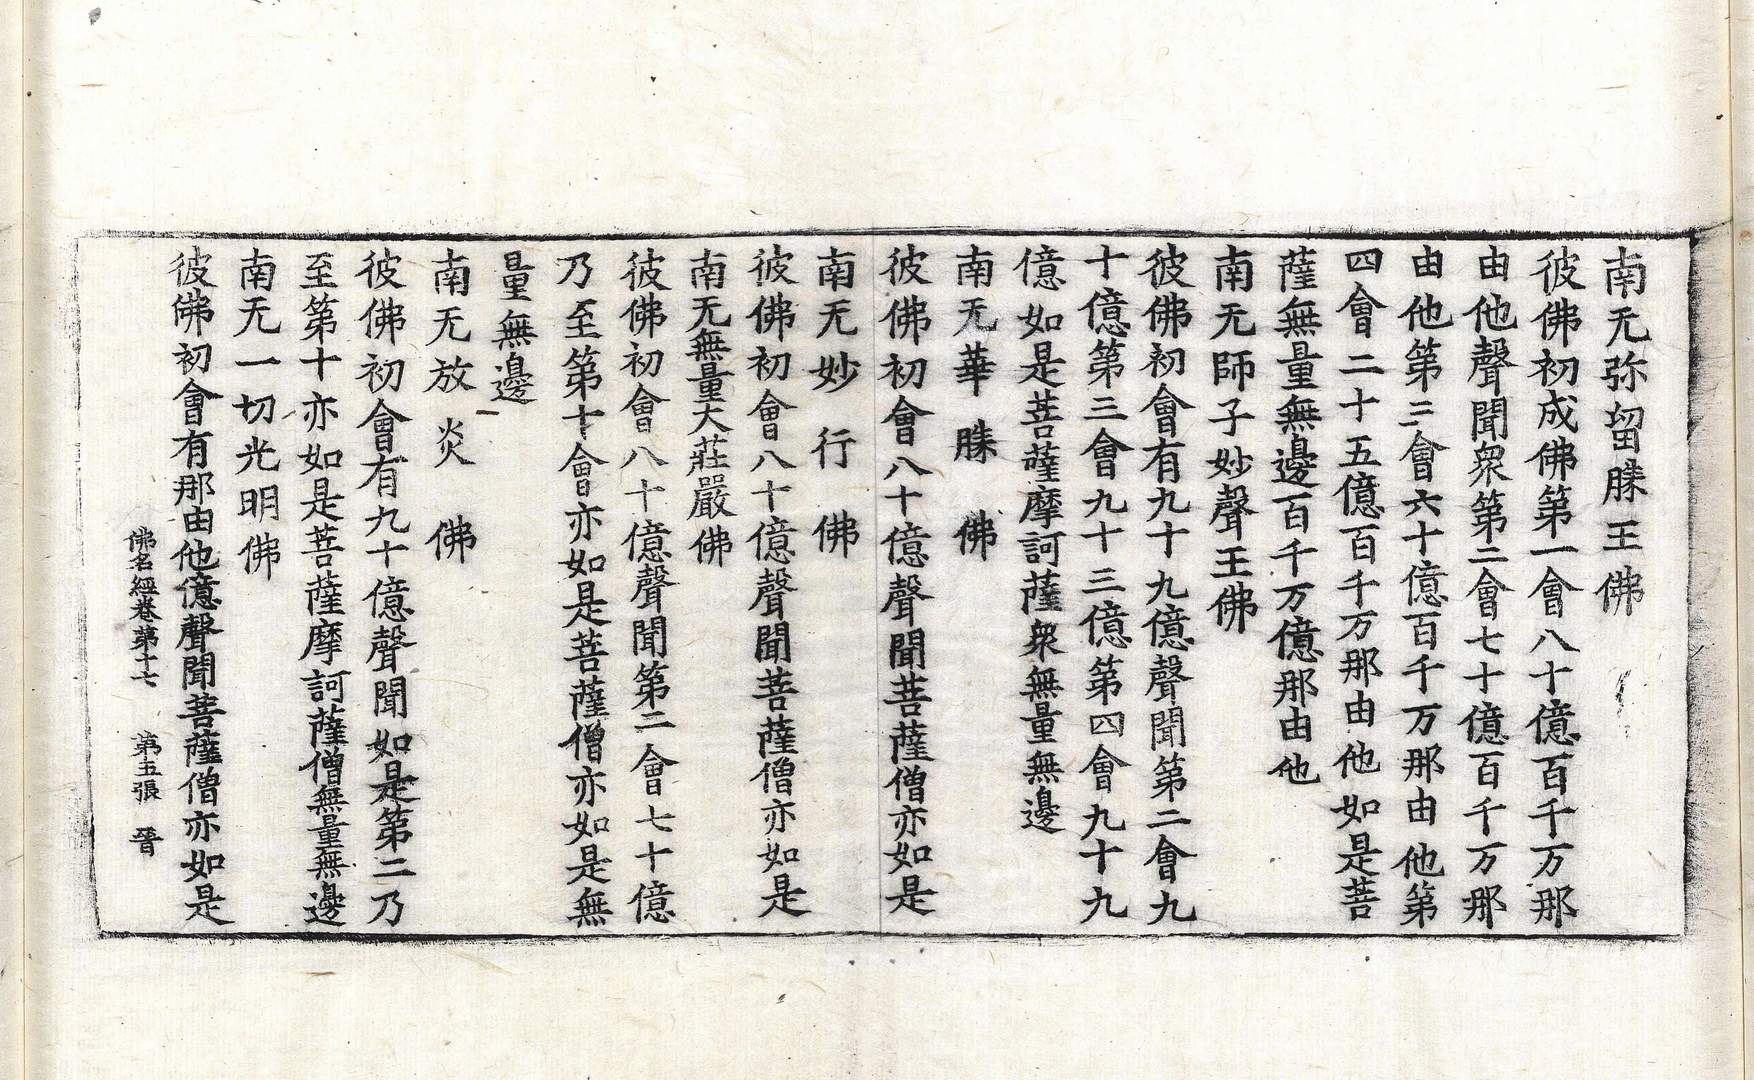 南无弥留勝王佛
彼佛初成佛第一會八十億百千万那
由他聲聞衆第二會七十億百千万那
由他第三會六十億百千万那由他第
四會二十五億百千万那由他如是菩
薩無量無邊百千万億那由他
南无師子妙聲王佛
彼佛初會有九十九億聲聞第二會九
十億第三會九十三億第四會九十九
億如是菩薩摩訶薩衆無量無邊
南无華勝佛
彼佛初會八十億聲聞菩薩僧亦如是
南无妙行佛
彼佛初會八十億聲聞菩薩僧亦如是
南无無量大莊嚴佛
彼佛初會八十億聲聞第二會七十億
乃至第十會亦如是菩薩僧亦如是無
量無邊
南无放炎佛
彼佛初會有九十億聲聞如是第二乃
至第十亦如是菩薩摩訶薩僧無量無邊
南无一切光明佛
彼佛初會有那由他億聲聞菩薩僧亦如是
佛名經卷第十七 第五張 晉